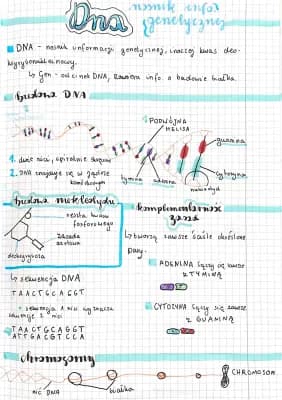 Dna
nośnik infor
genetycznej
DNA - nośnik informacji genetycznej, inaczej kwas deo-
ksyrybonukleinowy.
↳ Gen - odcinek DNA, zawiera info. o budowie białka.
budowa DNA
PODWÓJNA
HELISA
guanina
1. dwie nici, spiralnie skręcone
2. DNA znajduje się w jądrze
komórkowym
tymina
adenina
cytozyna
nukleotyd
budowa nukleotydu
reszta kwasu
fosforowego
zasada
azotowa
deoksyryboza
komplementarność
zasad
↳ tworzą zawsze ściśle określone
pary.
ADENINA łączy się zawsze
z TYMINĄ
CYTOZYNA łączy się zawsze
z GUANINĄ
↳ sekwencja DNA
TAACTGCAGGT
↳ sekwencja 1 nici wyznacza
sekwencję 2 nici
TAACTGCAGGT
ATTGACGTCCA
chromosomy
nić DNA
białka
CHROMOSOM